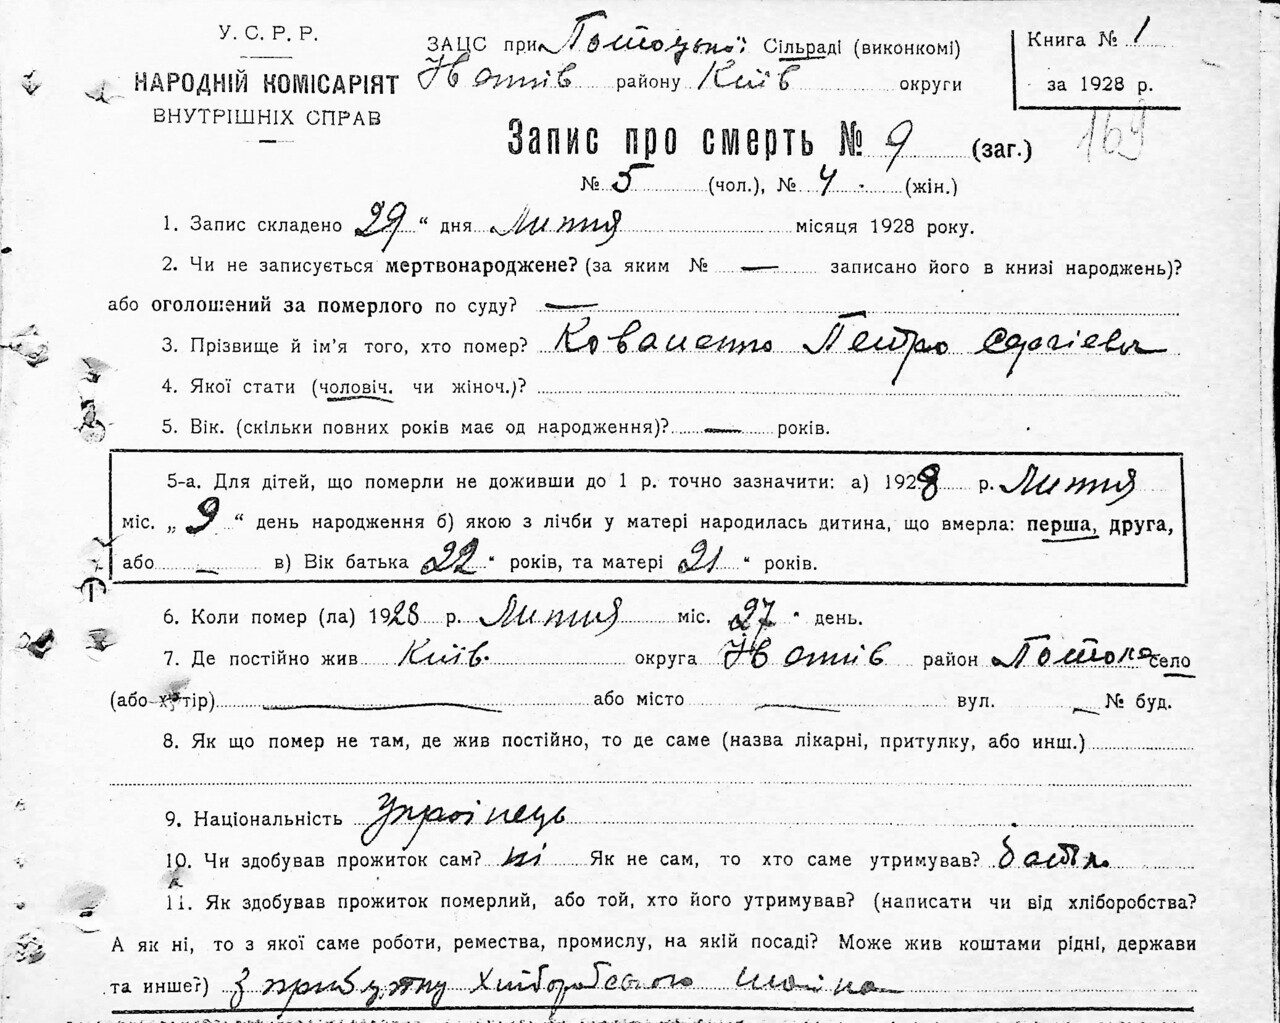 У. С. Р. Р.
НАРОДНІЙ КОМІСАРІЯТ
ВНУТРІШНІХ СПРАВ
ЗАЦС при Потоцької Сільраді (виконкомі)
району Київ округи
Книга № 1
за 1928 р.
169
Запис про смерть № 9 (заг.)
№ 5 (чол.), № 4 (жін.)
1. Запис складено 29 “ дня Липня місяця 1928 року.
2. Чи не записується мертвонароджене? (за яким № — записано його в книзі народжень)?
або оголошений за померлого по суду? —
3. Прізвище й ім’я того, хто помер? Коваленко Петро Сергієвич
4. Якої стати (чоловіч. чи жіноч.)?
5. Вік. (скільки повних років має од народження)? — років.
5-а. Для дітей, що померли не доживши до 1 р. точно зазначити: а) 1928 р. Липня
міс. „ 9 “ день народження б) якою з лічби у матері народилась дитина, що вмерла: перша, друга,
або — в) Вік батька 22 “ років, та матері 21 “ років.
6. Коли помер (ла) 1928 р. Липня міс. 27 “ день.
7. Де постійно жив Київ. округа район Потоки село
(або хутір) — або місто — вул. — № буд.
8. Як що помер не там, де жив постійно, то де саме (назва лікарні, притулку, або инш.)
9. Національність Українець
10. Чи здобував прожиток сам? ні Як не сам, то хто саме утримував? батько
11. Як здобував прожиток померлий, або той, хто його утримував? (написати чи від хліборобства?
А як ні, то з якої саме роботи, ремества, промислу, на якій посаді? Може жив коштами рідні, держави
та инше?) З прибутку Хліборобського